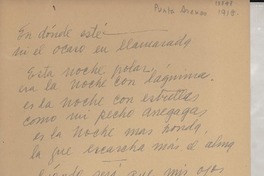 Punta Arenas
1918.
En dónde esté
ni el ocaso en llamarada
Esta noche polar
va la noche con lágrimas.
es la noche con estrellas
como mi pecho anegadas
es la noche mas honda
la que escarcha más el alma
será que mis ojos